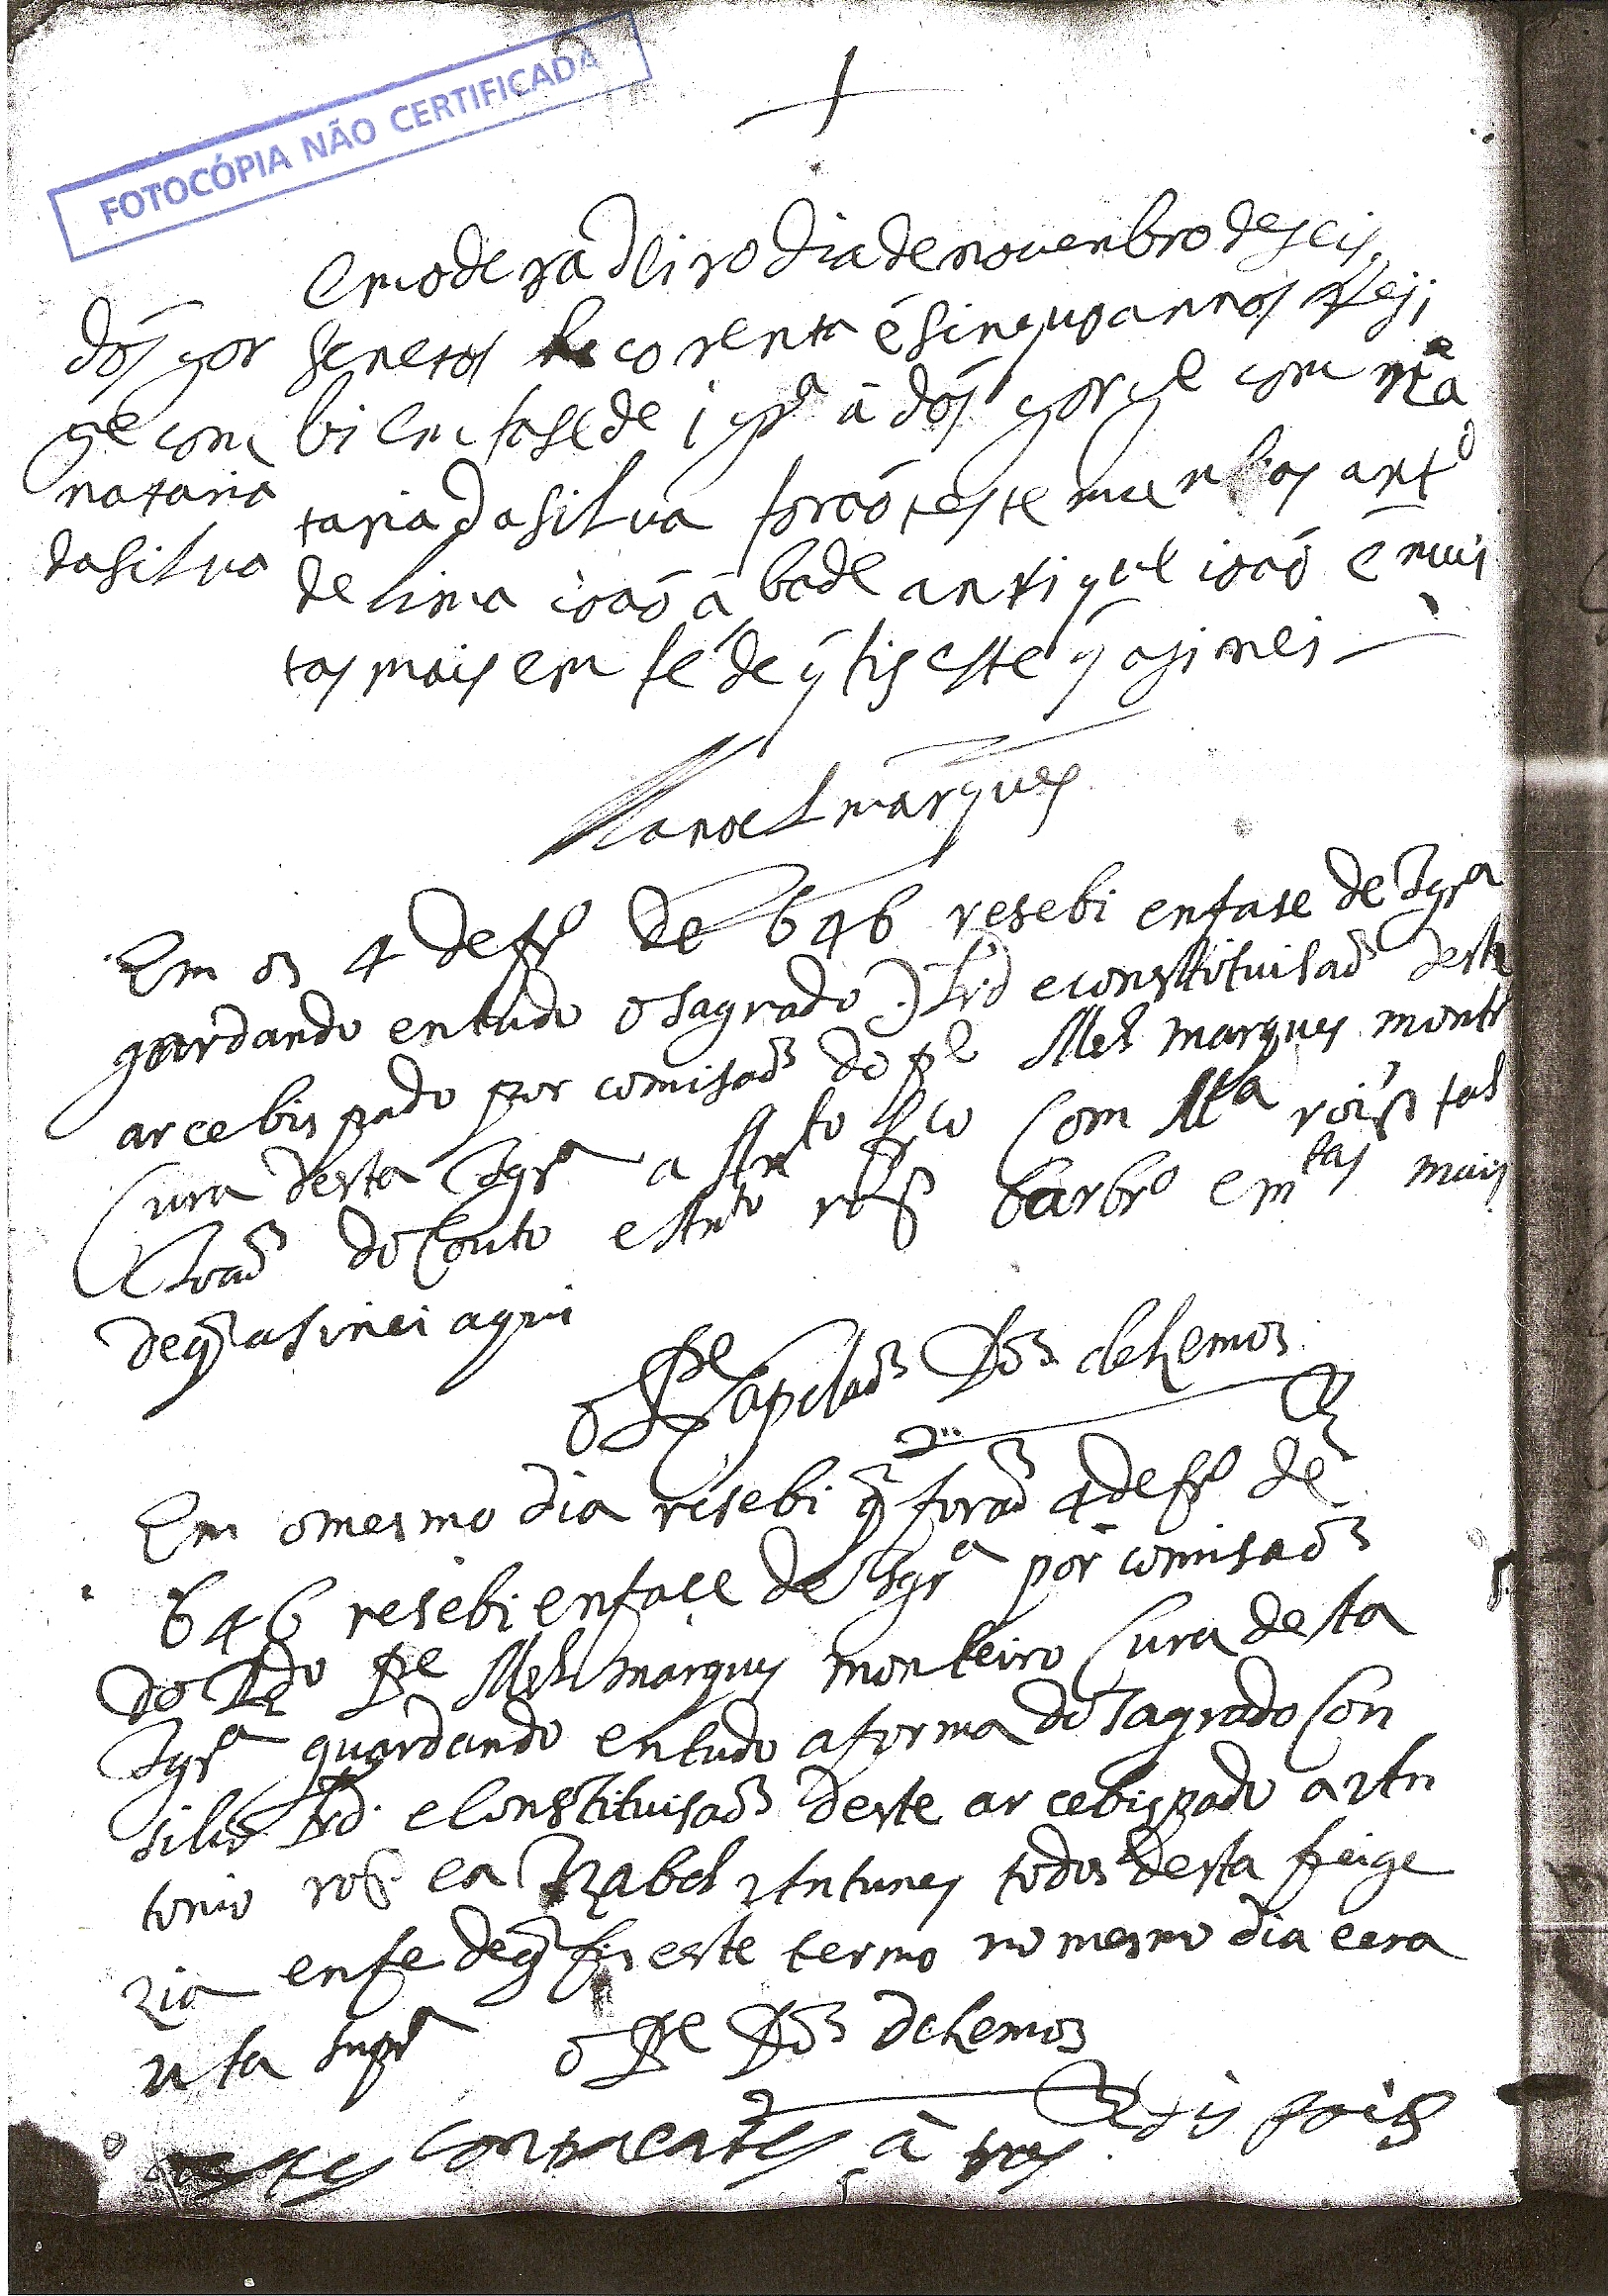 FOTOCÓPIA NÃO CERTIFICADA
dos gor
ge com
nataria
da Silva
em o deradeiro dia de novenbro de seis
sentos he corenta e sinquo annos resi
bi em fase de igrª a dos gorge com na
taria da Silva forão testemunhas antº
de lima ioão abade antigue ioão e mui
tas mais em fé de q̃ fis este q̃ asinei
Manoel marques
Em os 4 de frº de 646 resebi en fase de Igrª
gardando en tudo o sagrado Trid e constituisaõ deste
arcebispado por comisaõ do pe Mel marques montr
Cura desta Igrª a Anto frco Com Mta roiz tas
Joaõ do Couto e Anto roiz barbrº e mtas mais
de q̃ asinei aqui
o Pe Capelaõ Dos de Lemos
Em o mesmo dia resebi q̃ foraõ 4 de frº de
646 resebi en face de Igrª por comisaõ
do Ldo Pe Mel marques monteiro Cura desta
Igrª guardando en tudo a forma do Sagrado Con
silio Trd. e Constituisaõ deste arcebispado a An
tonio roiz e a Izabel Antunes todos desta freige
zia en fe de q̃ fis este termo no mesmo dia e era
ut a suprª o Pe Dos de Lemos